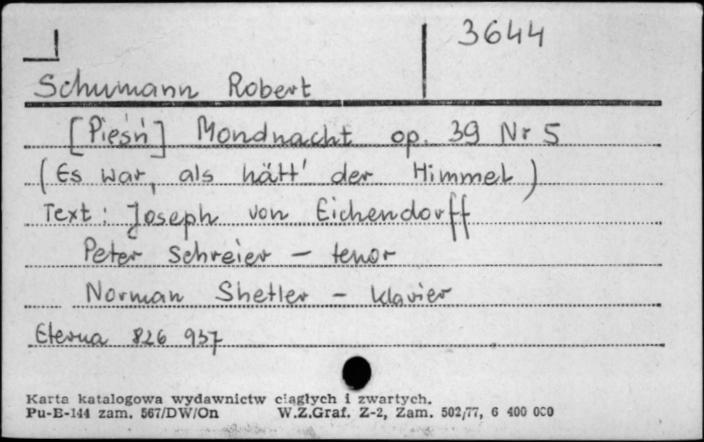 3644
Schumann Robert
[Pieśń] Mondnacht op. 39 Nr 5
(Es war, als hätt' der Himmel)
Text: Joseph von Eichendorff
Peter Schreier – tenor
Norman Shetler – klavier
Eterna 826 937
Karta katalogowa wydawnictw ciągłych i zwartych.
Pu-B-144 zam. 567/DW/On W.Z.Graf. Z-2, Zam. 502/77, 6 400 000